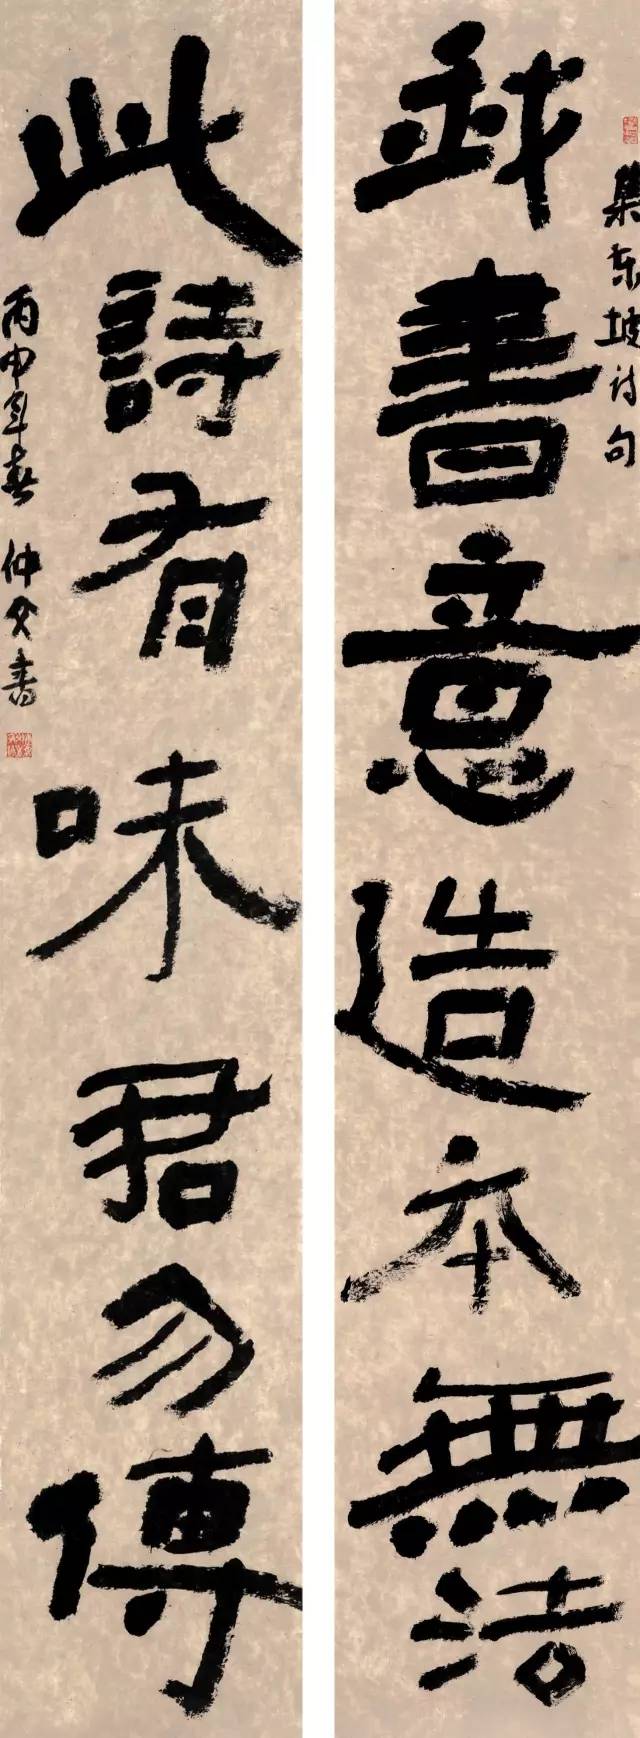 我書意造本無法
集东坡诗句
此詩有味君勿傳
丙申年春 仲父書